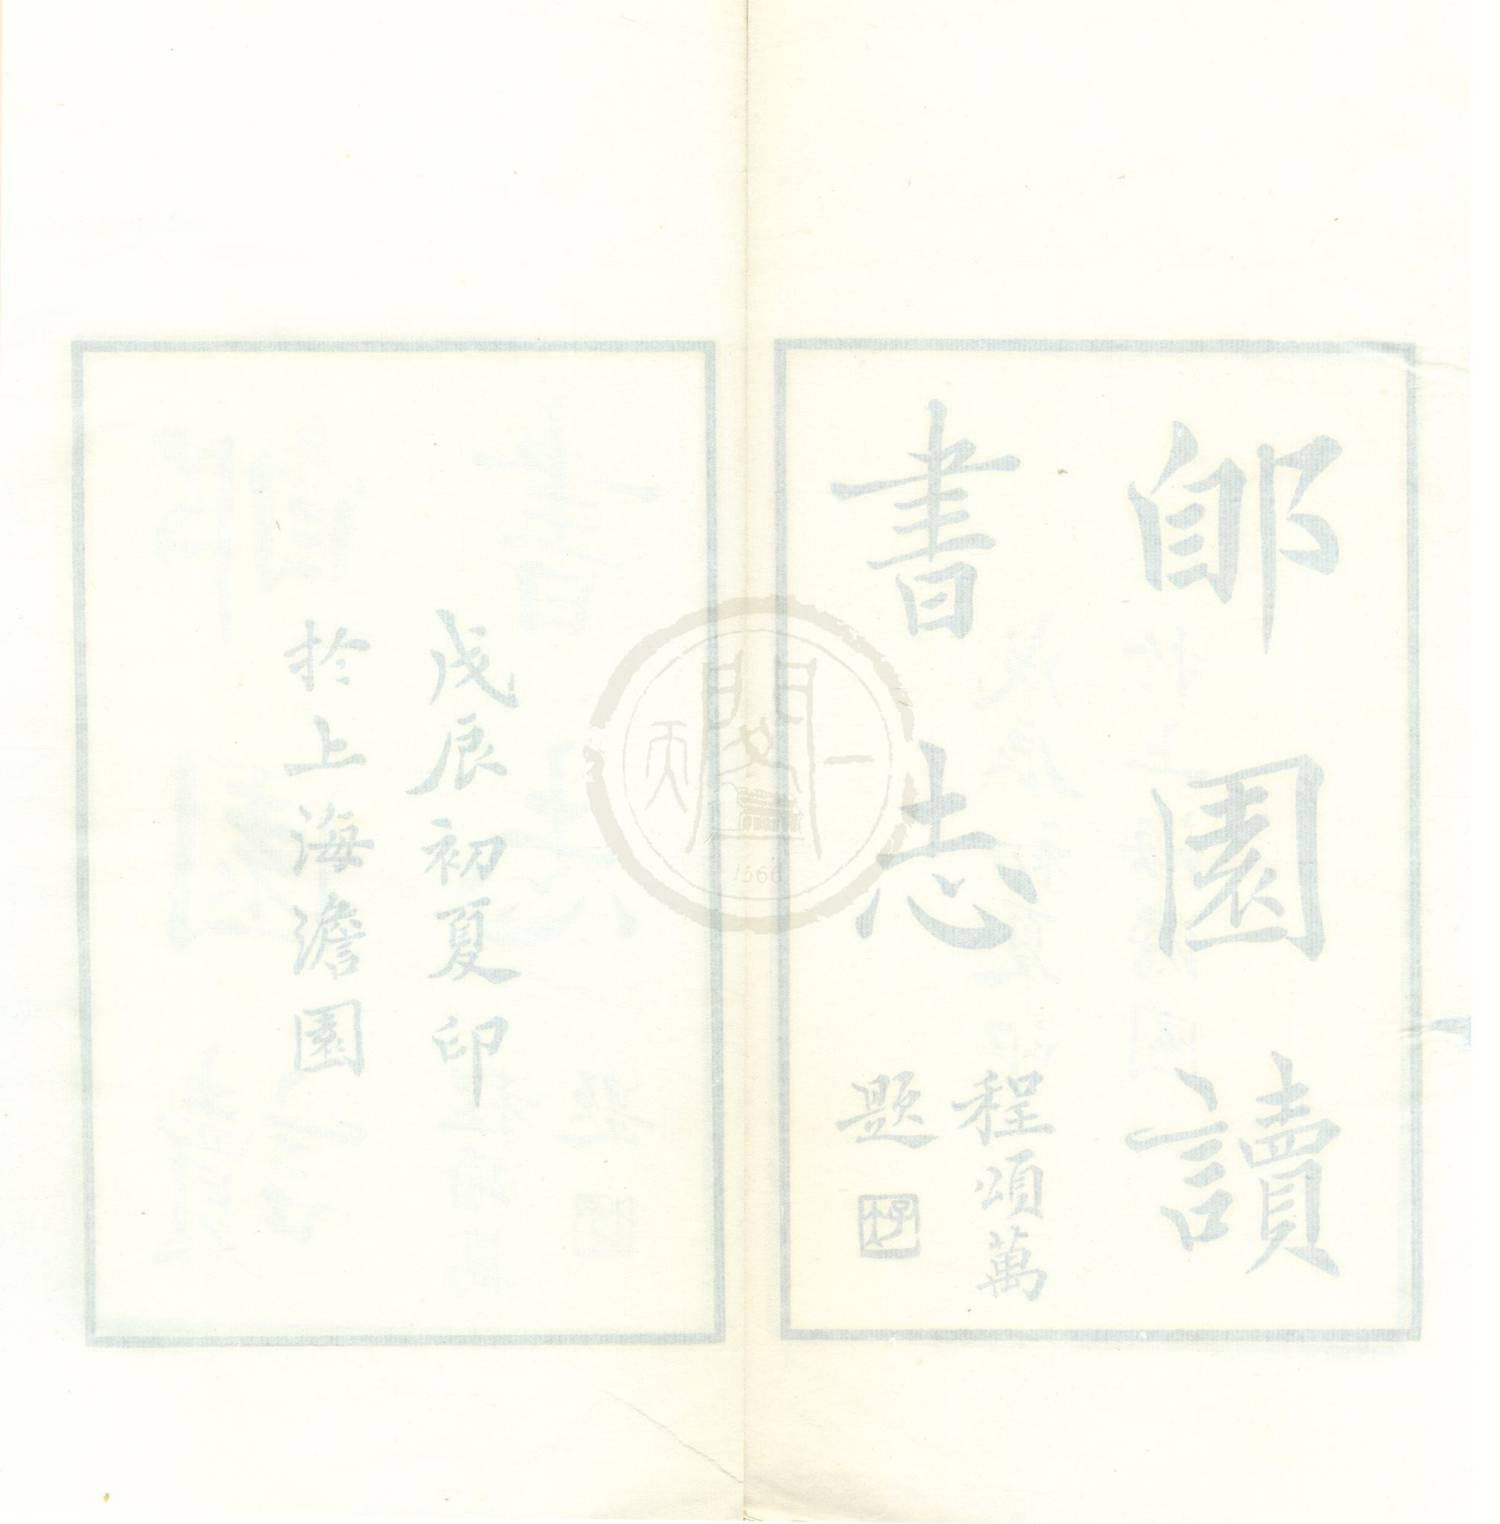 郋園讀
書志
程頌萬
題
戊辰初夏印
於上海澹園
天一閣
1566